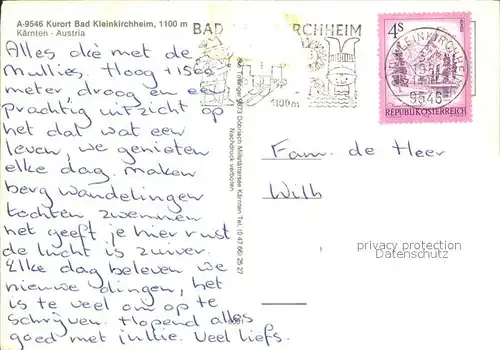 A-9546 Kurort Bad Kleinkirchheim, 1100 m
Kärnten - Austria
Alles oké met de
Mullies. Hoog 1150
meter, droog en een
Prachtig uitzicht op
het dal wat een
leven, we genieten
elke dag. maken
berg wandelingen
tochten zwemmen
het geeft je hier rust
de lucht is zuiver.
Elke dag beleven we
nieuwe dingen, het
is te veel om op te
schrijven. Hopend alles
goed met jullie. Veel liefs.
BAD KIRCHHEIM
1100 m
9546
4S
REPUBLIK ÖSTERREICH
Döbriach Millstättersee Kärnten Tel. (0 42 46)
Nachdruck verboten
Fam. de Heer
Wilh
privacy protection
Datenschutz